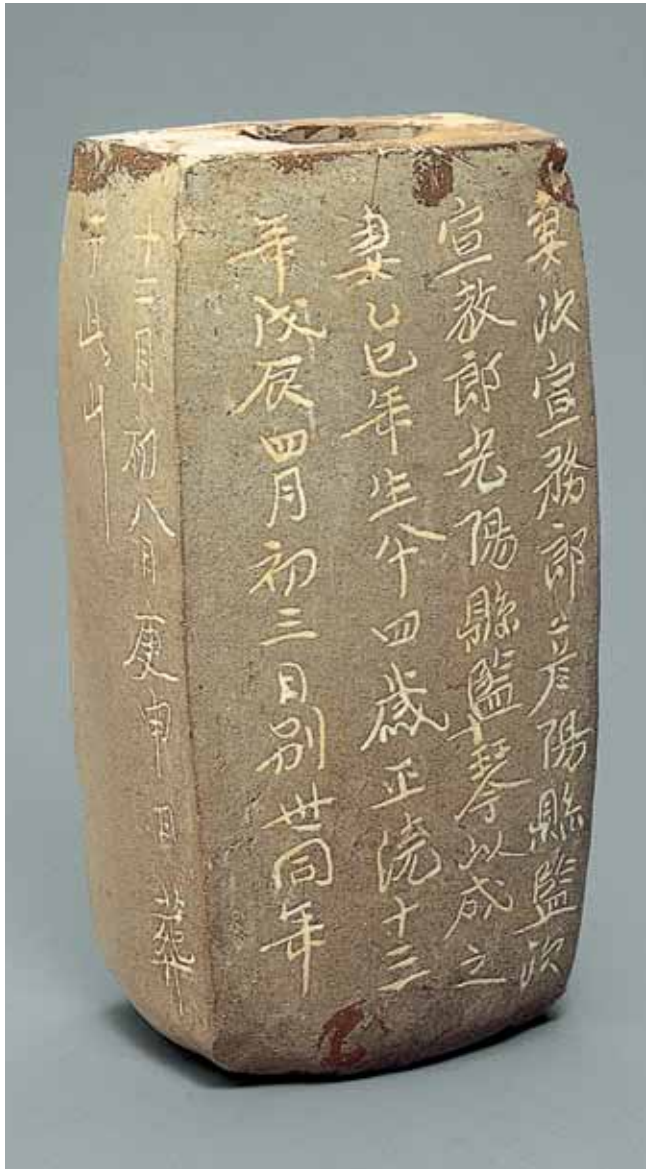 妻次宣務郎彦陽縣監次
宣教郎光陽縣監琴以成之
妻乙巳年生八十四歲正統十三
年戊辰四月初三日別世同年
十二月初八日庚申日葬
于此山